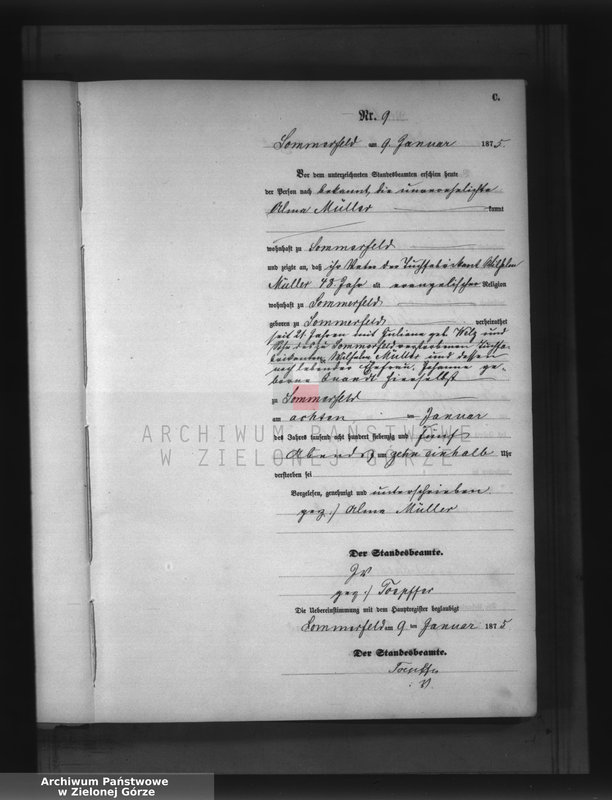 C.
Nr. 9
Sommerfeld am 9 Januar 1875.
Vor dem unterzeichneten Standesbeamten erschien heute
der Person nach bekannt, die unverehelichte
Alma Müller kannt
wohnhaft zu Sommerfeld
und zeigte an, daß ihr Vater der Tuchfabrikant Wilhelm
Müller 48 Jahr alt evangelischer Religion
wohnhaft zu Sommerfeld
geboren zu Sommerfeld verheirathet
seit 21 Jahren mit Juliane geb. und
Sohn des zu Sommerfeld verstorbenen Tuchfa-
brikanten Wilhelm Müller und dessen
noch lebender Ehefrau, Johanne ge-
borne Brandt hierselbst
zu Sommerfeld
am achten Januar
des Jahres tausend acht hundert siebenzig und fünf
Abends um zehn einhalb Uhr
verstorben sei
Vorgelesen, genehmigt und unterschrieben
gez.) Alma Müller
Der Standesbeamte.
gez.) Toepffer
Die Uebereinstimmung mit dem Hauptregister beglaubigt
Sommerfeld am 9 ten Januar 1875
Der Standesbeamte.
Toepffer
ARCHIWUM PAŃSTWOWE
W ZIELONEJ GÓRZE
Archiwum Państwowe
w Zielonej Górze